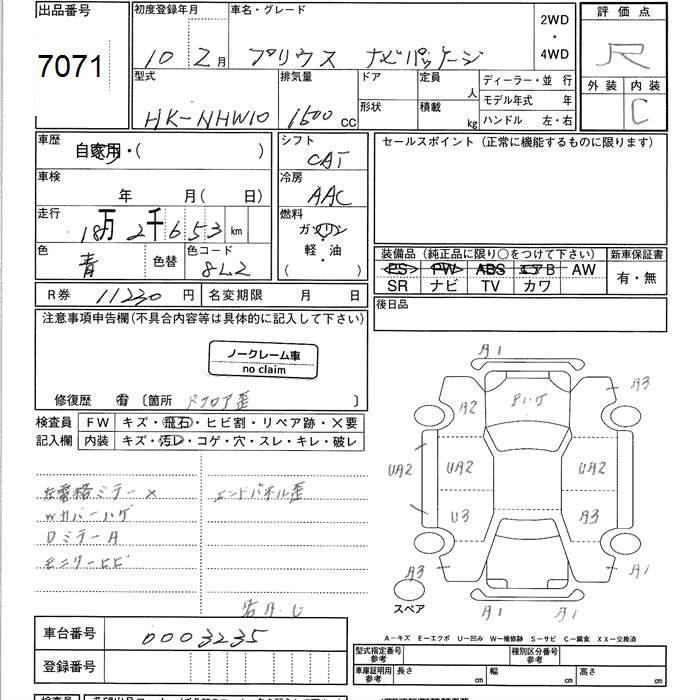 出品番号 初度登録年月 車名・グレード 2WD ・ 4WD 評価点
7071 10 2月 プリウス ナビパッケージ R
型式 排気量 ドア 定員 人 ディーラー・並行 外装 内装
HK-NHW10 1500 cc 形状 積載 kg モデル年式 年 C
ハンドル 左・右
車歴 自家用・( ) シフト CAT セールスポイント(正常に機能するものに限ります)
車検 年 月( 日) 冷房 AAC
走行 18万 2千 6 5 3 km 燃料 ガソリン
色 青 色替 色コード 8L2 軽・油 ( )
装備品(純正品に限り○をつけて下さい) 新車保証書
PS PW ABS エアB AW 有・無
SR ナビ TV カワ
R券 11230 円 名変期限 月 日 後日品
注意事項申告欄(不具合内容等は具体的に記入して下さい)
ノークレーム車
no claim
修復歴 有 〔箇所 〕
検査員 FW キズ・飛石・ヒビ割・リペア跡・×要
記入欄 内装 キズ・汚レ・コゲ・穴・スレ・キレ・破レ
A1
A3
A2
UA2 UA2 UA2
U3 A3
A3 A1
スペア
A1 A1
左電格ミラー× エンドパネル歪
Wカバーハゲ
DミラーA
モニターヒビ
A-キズ E-エクボ U-凹み W-補修跡 S-サビ C-腐食 XX-交換済
車台番号 0003235 型式指定番号 参考 種別区分番号 参考
登録番号 車庫証明用 参考 長さ cm 幅 cm 高さ cm